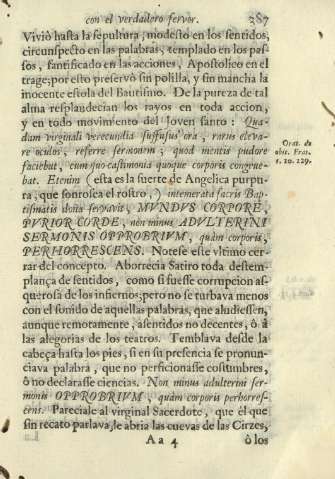 con el verdadero fervor. 287
Vivió hasta la sepultura, modesto en los sentidos,
circunspecto en las palabras, templado en los pas-
sos, santificado en las acciones, Apostolico en el
trage; por esto preservò sin polilla, y sin mancha la
inocente estola del Bautismo. De la pureza de tal
alma resplandecian los rayos en toda accion,
y en todo movimiento del Joven santo: Qua-
dam virginali verecundia suffusus ora, rarus eleva-
re oculos, referre sermonem; quod mentis pudore
faciebat, cum quo castimonia quoque corporis congrue-
bat. Etenim (esta es la suerte de Angelica purpu-
ra, que sonrosea el rostro,) intemerata sacris Bap-
tismatis donis servavit, MUNDUS CORPORE,
PURIOR CORDE, non minus ADULTERINI
SERMONIS OPPROBRIUM, quàm corporis,
PERHORRESCENS. Notese este vltimo cer-
rar del concepto. Aborrecia Satiro toda destem-
plança de sentidos, como si fuesse corrupcion as-
querosa de los infiernos; pero no se turbava menos
con el sonido de aquellas palabras, que aludiessen,
aunque remotamente, à sentidos no decentes, ò à
las alegorias de los teatros. Temblava desde la
cabeça hasta los pies, si en su presencia se pronun-
ciava palabra, que no perficionasse costumbres,
ò no declarasse ciencias. Non minus adulterini ser-
monis OPPROBRIUM, quàm corporis perhorres-
cens. Pareciale al virginal Sacerdote, que él que
sin recato parlava, le abria las cuevas de las Cirzes,
A a 4 ò los
Orat. de
obit. Frat.